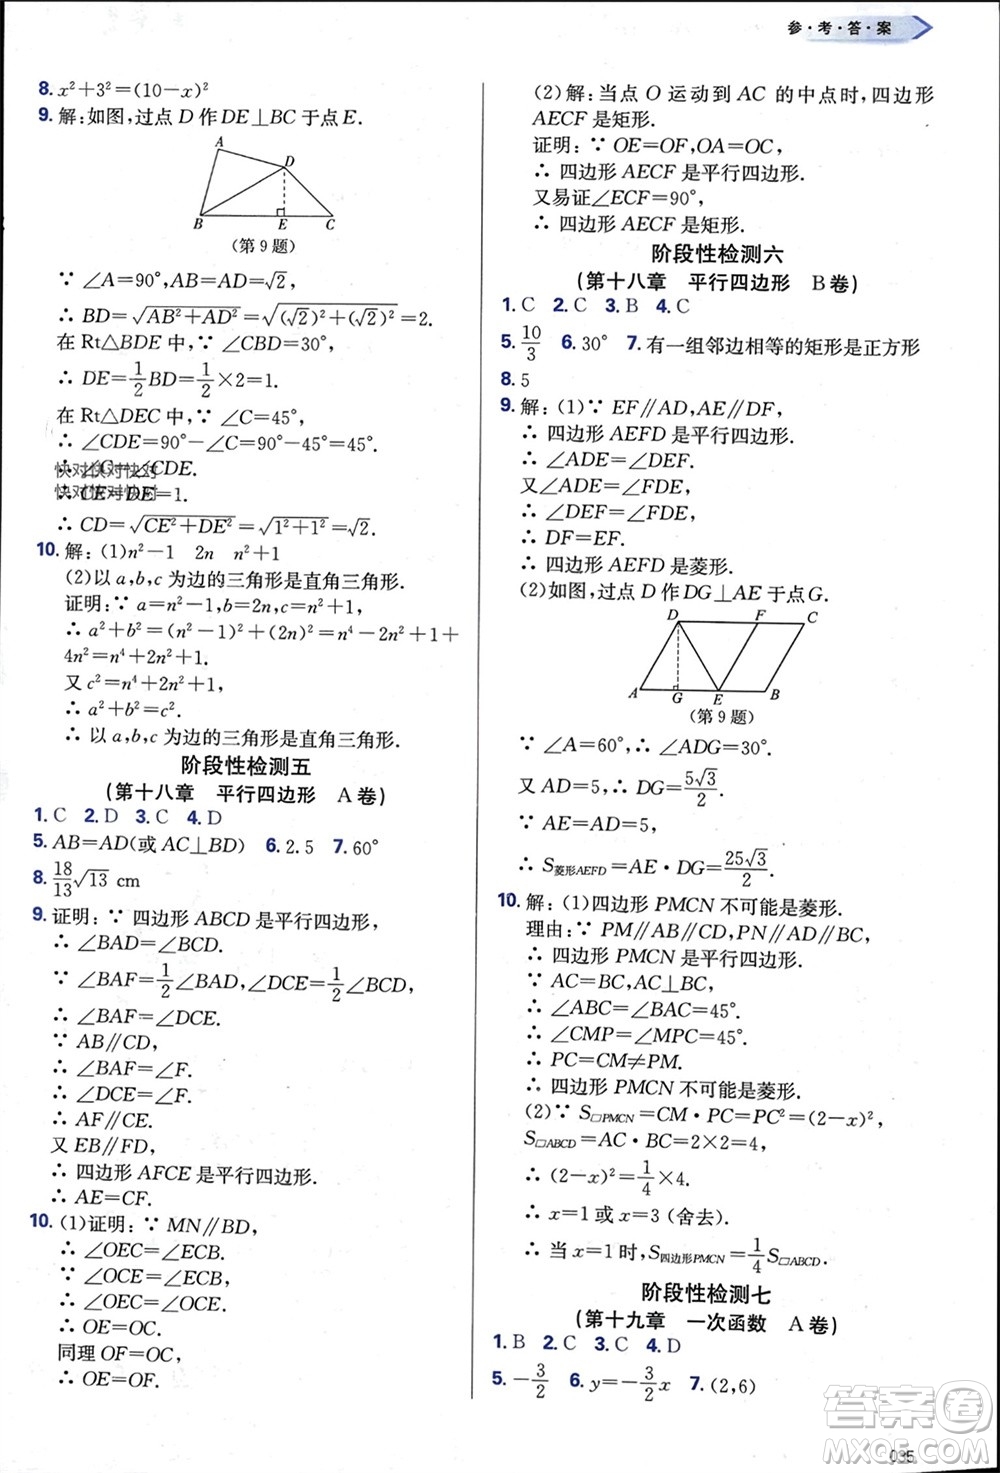 参·考·答·案
8. x²+3²=(10-x)²
9. 解:如图,过点 D 作 DE⊥BC 于点 E.
A
D
B
E
C
(第 9 题)
∵ ∠A=90°,AB=AD=√2,
∴ BD=√(AB²+AD²)=√((√2)²+(√2)²)=2.
在 Rt△BDE 中,∵ ∠CBD=30°,
∴ DE=1/2BD=1/2×2=1.
在 Rt△DEC 中,∵ ∠C=45°,
∴ ∠CDE=90°-∠C=90°-45°=45°.
∴ ∠C=∠CDE.
∴ CE=DE=1.
快对快对快对
快对快对快对
∴ CD=√(CE²+DE²)=√(1²+1²)=√2.
10. 解:(1)n²-1 2n n²+1
(2)以 a,b,c 为边的三角形是直角三角形.
证明:∵ a=n²-1,b=2n,c=n²+1,
∴ a²+b²=(n²-1)²+(2n)²=n⁴-2n²+1+
4n²=n⁴+2n²+1.
又 c²=n⁴+2n²+1,
∴ a²+b²=c².
∴ 以 a,b,c 为边的三角形是直角三角形.
阶段性检测五
(第十八章 平行四边形 A 卷)
1. C 2. D 3. C 4. D
5. AB=AD(或 AC⊥BD) 6. 2.5 7. 60°
8. 18/13√13 cm
9. 证明:∵ 四边形 ABCD 是平行四边形,
∴ ∠BAD=∠BCD.
∵ ∠BAF=1/2∠BAD,∠DCE=1/2∠BCD,
∴ ∠BAF=∠DCE.
∵ AB∥CD,
∴ ∠BAF=∠F.
∴ ∠DCE=∠F.
∴ AF∥CE.
又 EB∥FD,
∴ 四边形 AFCE 是平行四边形.
∴ AE=CF.
10. (1)证明:∵ MN∥BD,
∴ ∠OEC=∠ECB.
∵ ∠OCE=∠ECB,
∴ ∠OEC=∠OCE.
∴ OE=OC.
同理 OF=OC,
∴ OE=OF.
(2)解:当点 O 运动到 AC 的中点时,四边形
AECF 是矩形.
证明:∵ OE=OF,OA=OC,
∴ 四边形 AECF 是平行四边形.
又易证∠ECF=90°,
∴ 四边形 AECF 是矩形.
阶段性检测六
(第十八章 平行四边形 B 卷)
1. C 2. C 3. B 4. C
5. 10/3 6. 30° 7. 有一组邻边相等的矩形是正方形
8. 5
9. 解:(1)∵ EF∥AD,AE∥DF,
∴ 四边形 AEFD 是平行四边形.
∴ ∠ADE=∠FED.
又∠ADE=∠FDE,
∴ ∠DEF=∠FDE.
∴ DF=EF.
∴ 四边形 AEFD 是菱形.
(2)如图,过点 D 作 DG⊥AE 于点 G.
D
F
C
A
G
E
B
(第 9 题)
∵ ∠A=60°,∴ ∠ADG=30°.
又 AD=5,∴ DG=5√3/2.
∵ AE=AD=5,
∴ S菱形AEFD=AE·DG=25√3/2.
10. 解:(1)四边形 PMCN 不可能是菱形.
理由:∵ PM∥AB∥CD,PN∥AD∥BC,
∴ 四边形 PMCN 是平行四边形.
∵ AC=BC,AC⊥BC,
∴ ∠ABC=∠BAC=45°.
∴ ∠CMP=∠MPC=45°.
∴ PC=CM≠PM.
∴ 四边形 PMCN 不可能是菱形.
(2)∵ S▱PMCN=CM·PC=PC²=(2-x)²,
S▱ABCD=AC·BC=2×2=4,
∴ (2-x)²=1/4×4.
∴ x=1 或 x=3 (舍去).
∴ 当 x=1 时,S四边形PMCN=1/4S▱ABCD.
阶段性检测七
(第十九章 一次函数 A 卷)
1. B 2. C 3. C 4. D
5. -3/2 6. y=-3/2x 7. (2,6)
答案圈
MXQE.COM
035